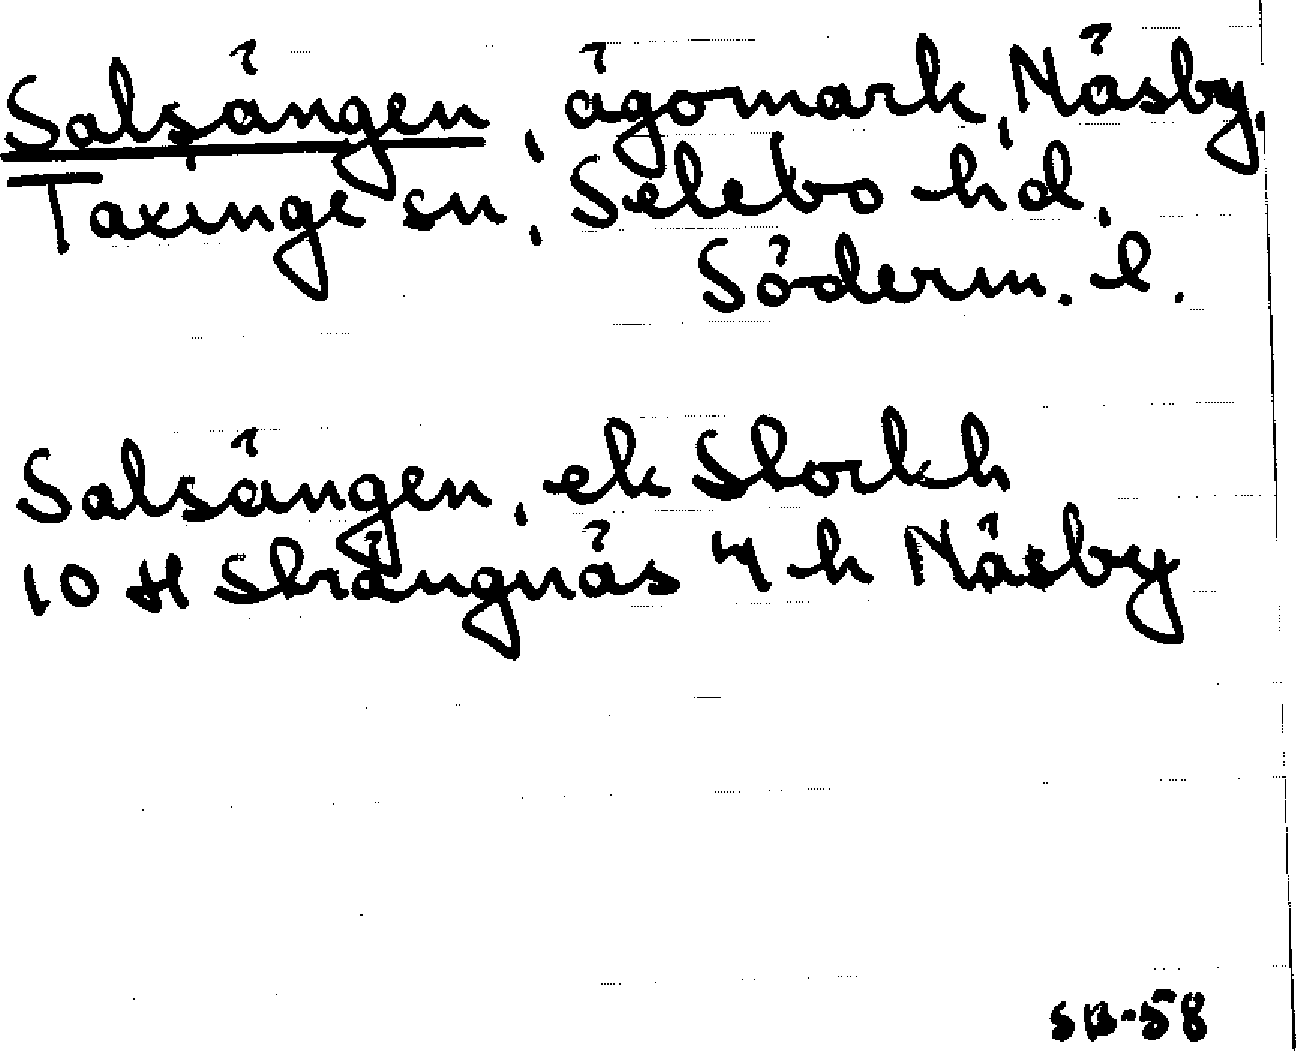 Salsängen, ägomark, Näsby,
Taxinge sn, Selebo hd,
Söderm. l.
Salsängen, ek Stockh
10 H Strängnäs 4 h Näsby
SB-58